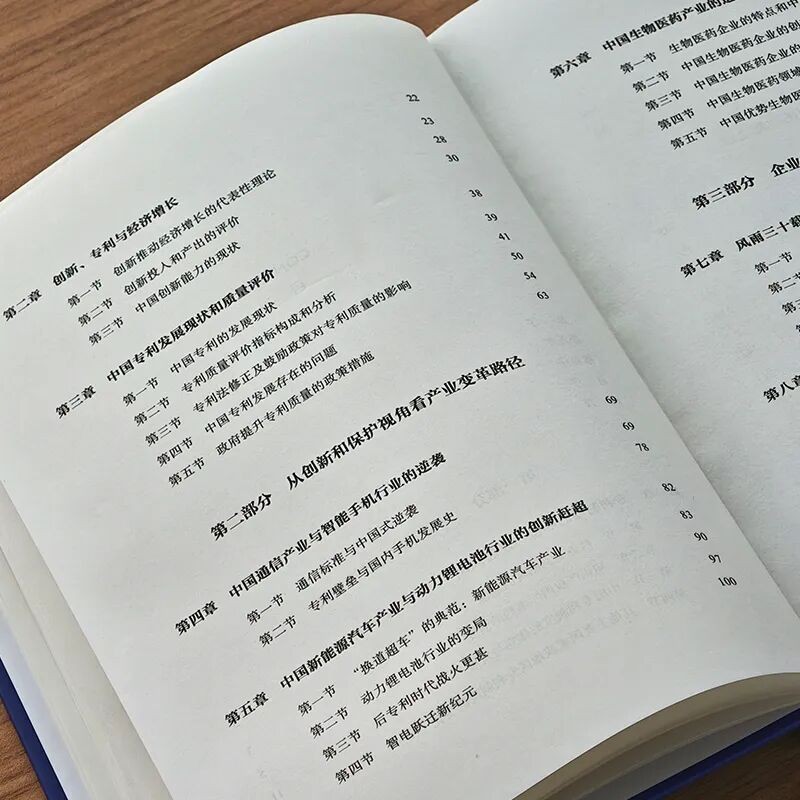 第二章 创新、专利与经济增长 22
第一节 创新推动经济增长的代表性理论 23
第二节 创新投入和产出的评价 28
第三节 中国创新能力的现状 30
第三章 中国专利发展现状和质量评价 38
第一节 中国专利的发展现状 39
第二节 专利质量评价指标构成和分析 41
第三节 专利法修正及鼓励政策对专利质量的影响 50
第四节 中国专利发展存在的问题 54
第五节 政府提升专利质量的政策措施 63
第二部分 从创新和保护视角看产业变革路径
第四章 中国通信产业与智能手机行业的逆袭 69
第一节 通信标准与中国式逆袭 69
第二节 专利壁垒与国内手机发展史 78
第五章 中国新能源汽车产业与动力锂电池行业的创新赶超 82
第一节 “换道超车”的典范：新能源汽车产业 83
第二节 动力锂电池行业的变局 90
第三节 后专利时代战火更甚 97
第四节 智电跃迁新纪元 100
第六章 中国生物医药产业的
第一节 生物医药企业的特点和中
第二节 中国生物医药企业的创
第三节 中国生物医药企业的
第四节 中国生物医药领域
第五节 中国优势生物医
第三部分 企业
第七章 风雨三十载
第一节
第二节
第三节
第八章